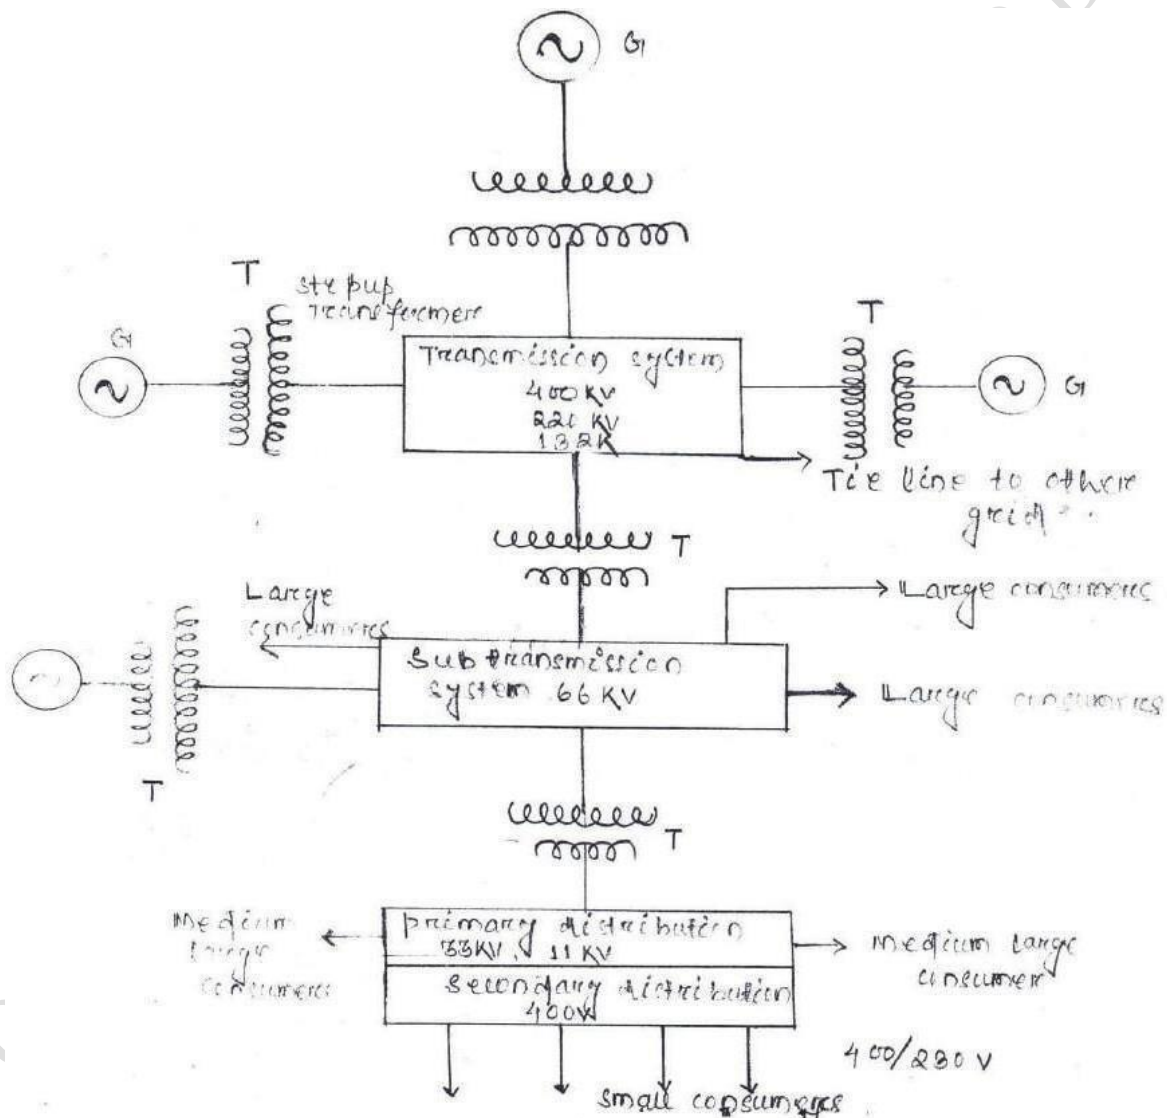 G
T
step up
Transformer
G
Transmission system
400 KV
220 KV
132K
T
G
Tie line to other
grid
T
Large
consumers
Large consumers
Sub transmission
system 66 KV
Large consumers
T
T
Medium
large
consumers
primary distribution
33KV, 11 KV
Medium large
consumer
Secondary distribution
400V
400/230 V
small consumers